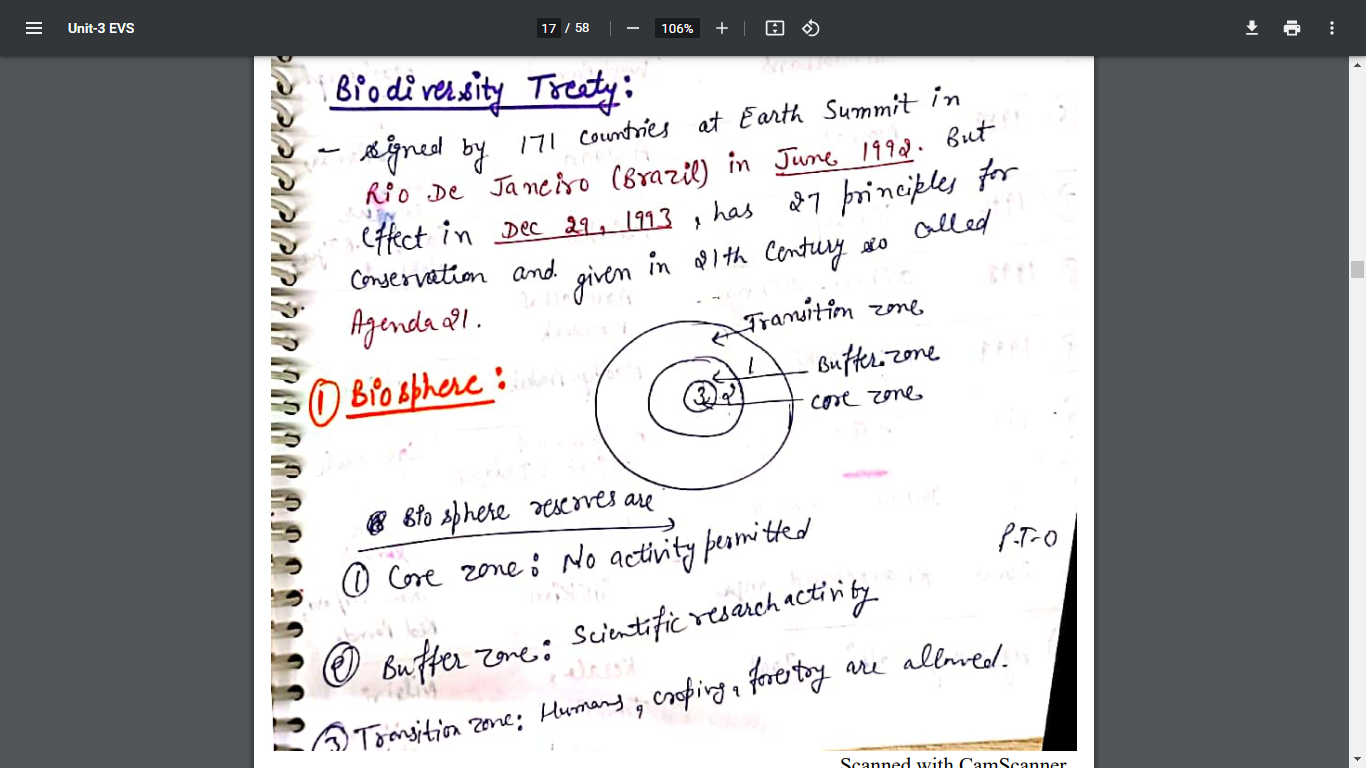 Unit-3 EVS
17 / 58
106%
Biodiversity Treaty:
- signed by 171 countries at Earth Summit in
Rio De Janeiro (Brazil) in June 1992. But
effect in Dec 29, 1993, has 27 principles for
Conservation and given in 21th Century so called
Agenda 21.
Transition zone
① Biosphere:
1
Buffer zone
3 2
core zone
Biosphere reserves are
① Core zone: No activity permitted
P.T.O
② Buffer zone: Scientific resarch activity
③ Transition zone: Humans, croping, forestry are allowed.
Scanned with CamScanner